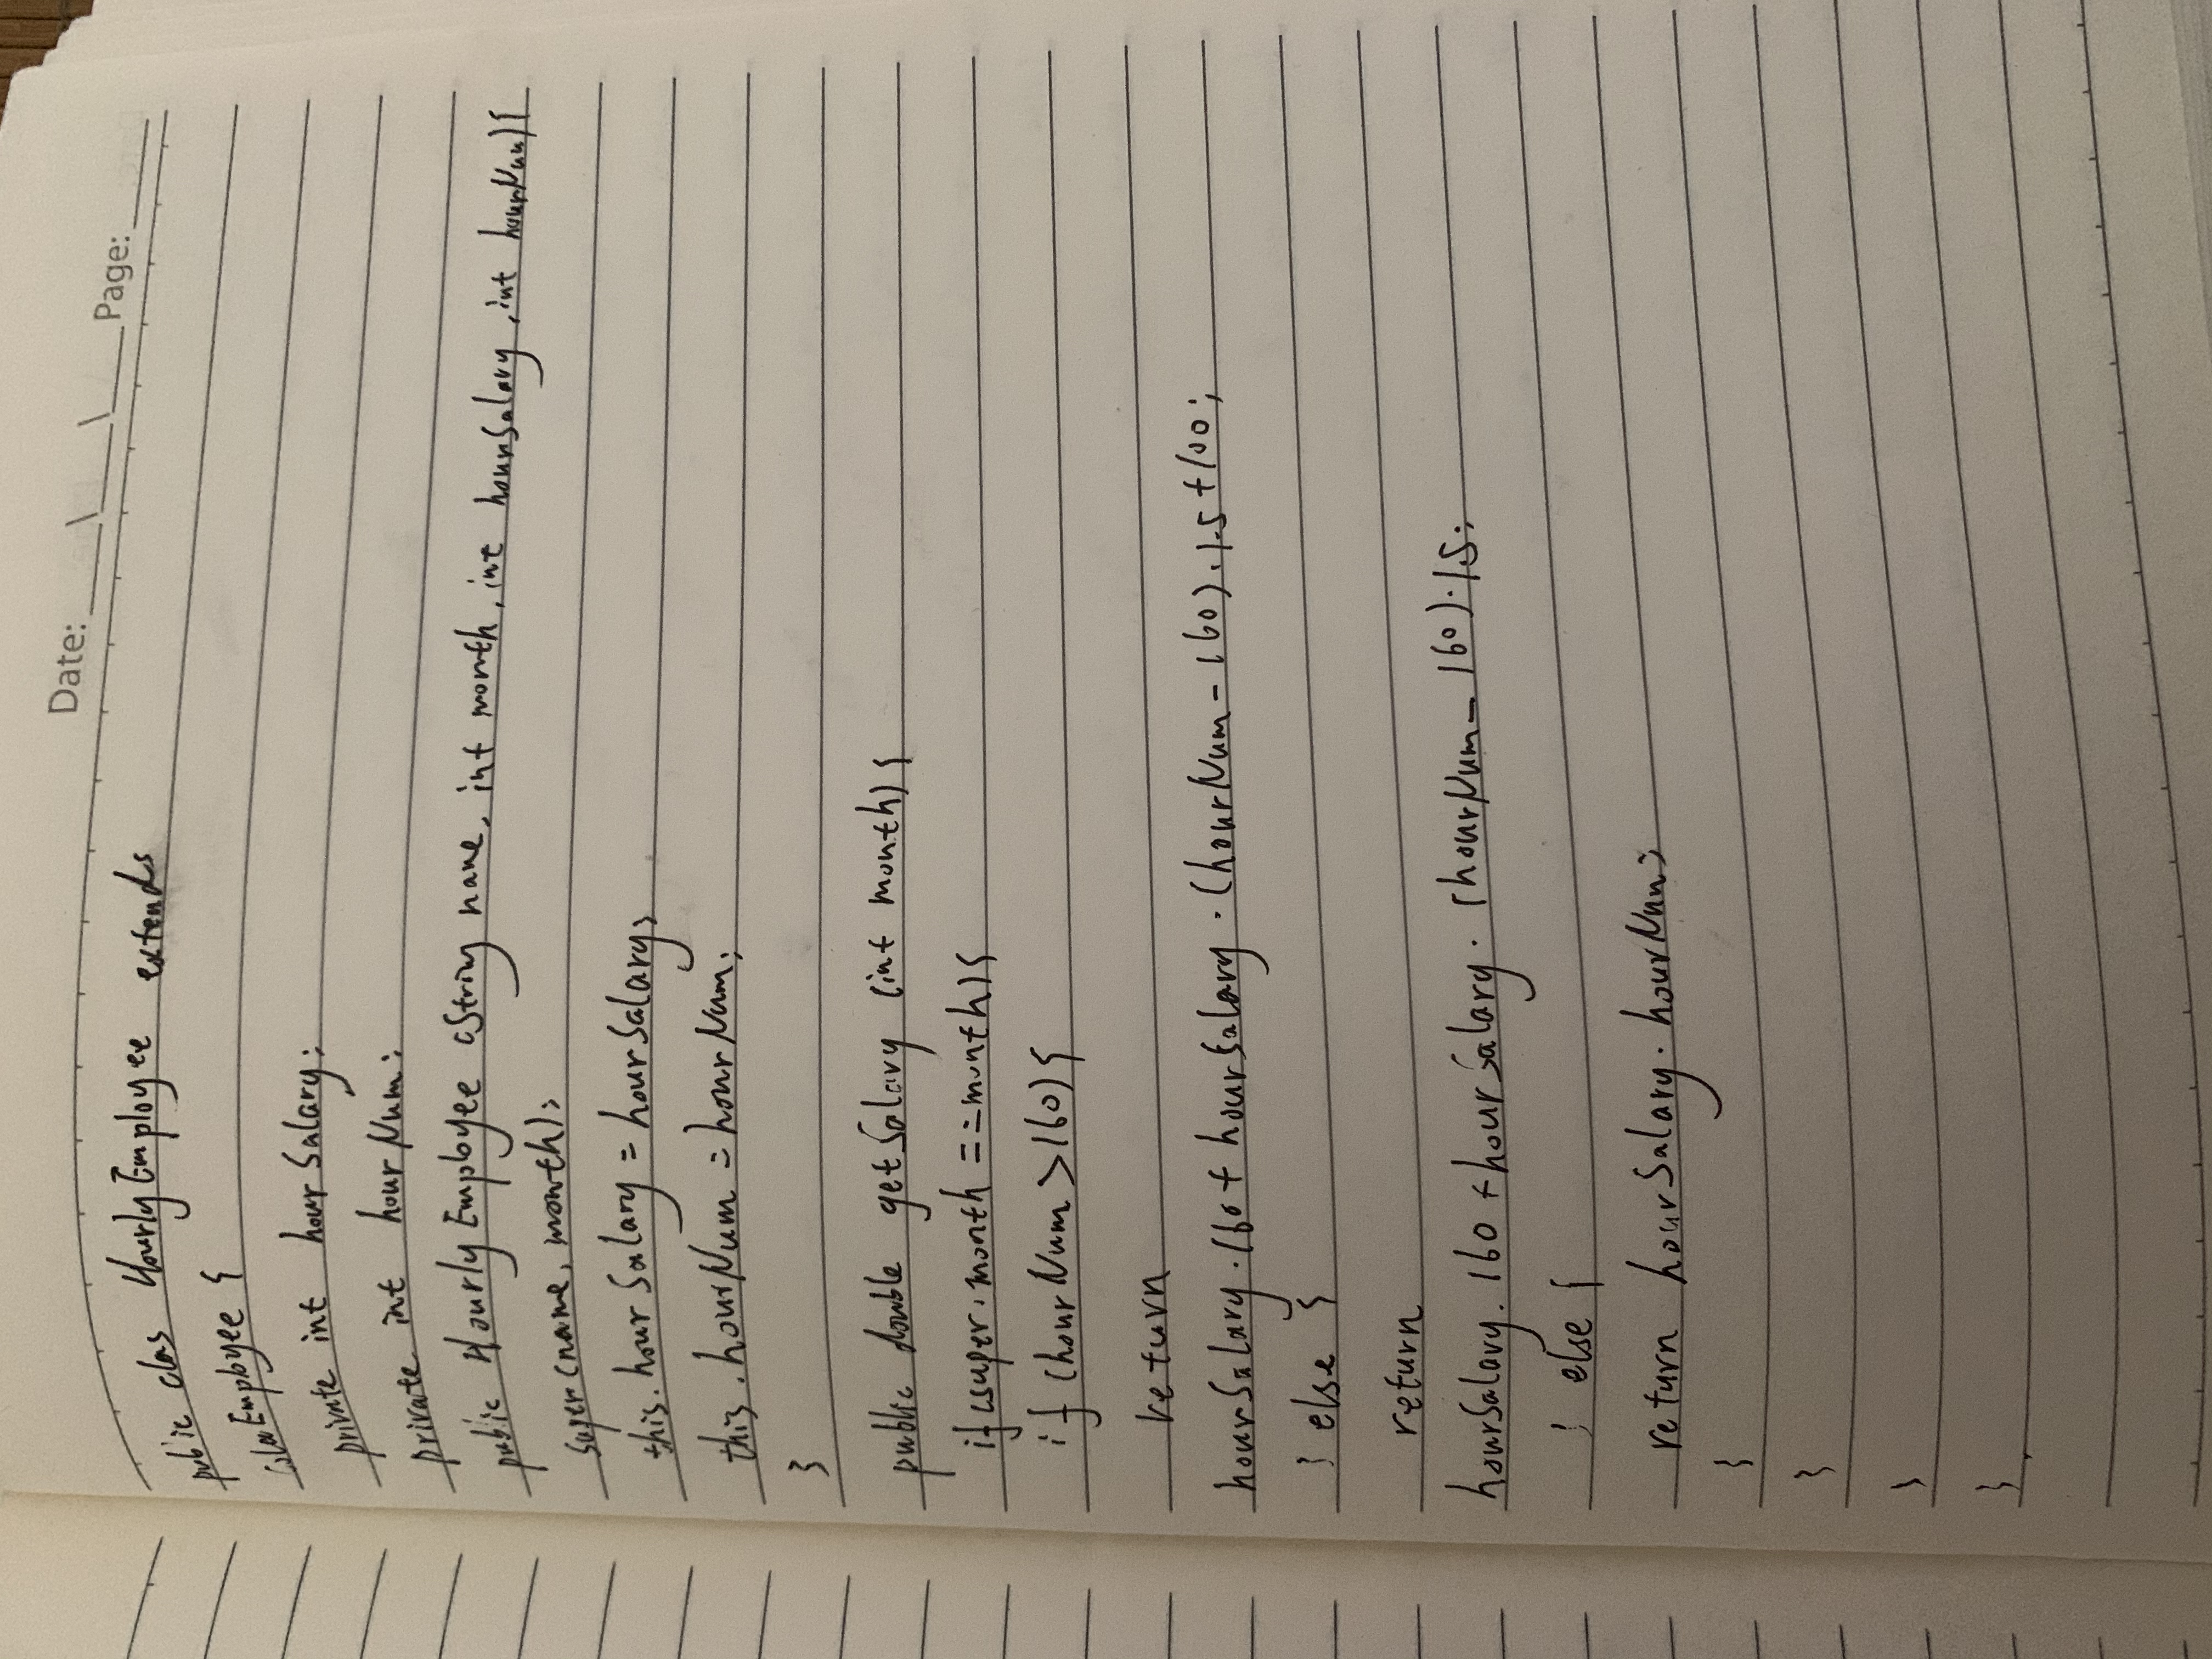 Date: Page:
public clas HourlyEmployee extends
ColaEmployee {
private int hourSalary;
private int hourNum;
public HourlyEmployee (String name, int month, int hourSalary, int hourNum){
super(name, month);
this.hourSalary = hourSalary;
this.hourNum = hourNum;
}
public double getSalary (int month){
if(super.month==month){
if (hourNum>160){
return
hourSalary·160+hourSalary·(hourNum-160)·1.5+100;
} else {
return
hourSalary·160+hourSalary·(hourNum-160)·1.5;
} else {
return hourSalary·hourNum;
}
}
}
}